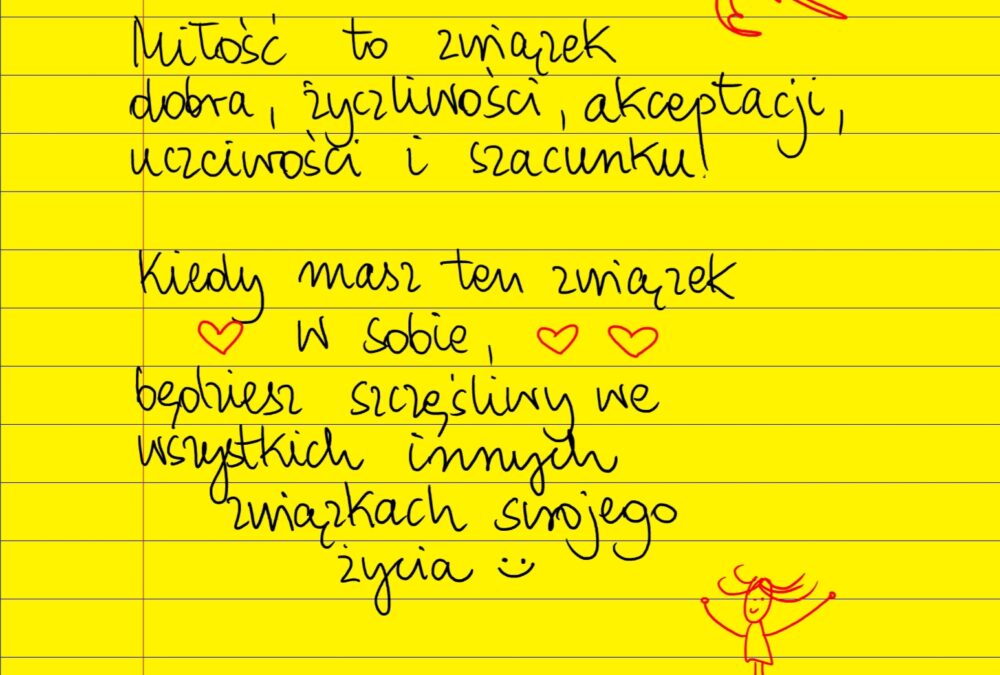 Miłość to związek
dobra, życzliwości, akceptacji,
uczciwości i szacunku!
Kiedy masz ten związek
w sobie,
będziesz szczęśliwy we
wszystkich innych
związkach swojego
życia :)